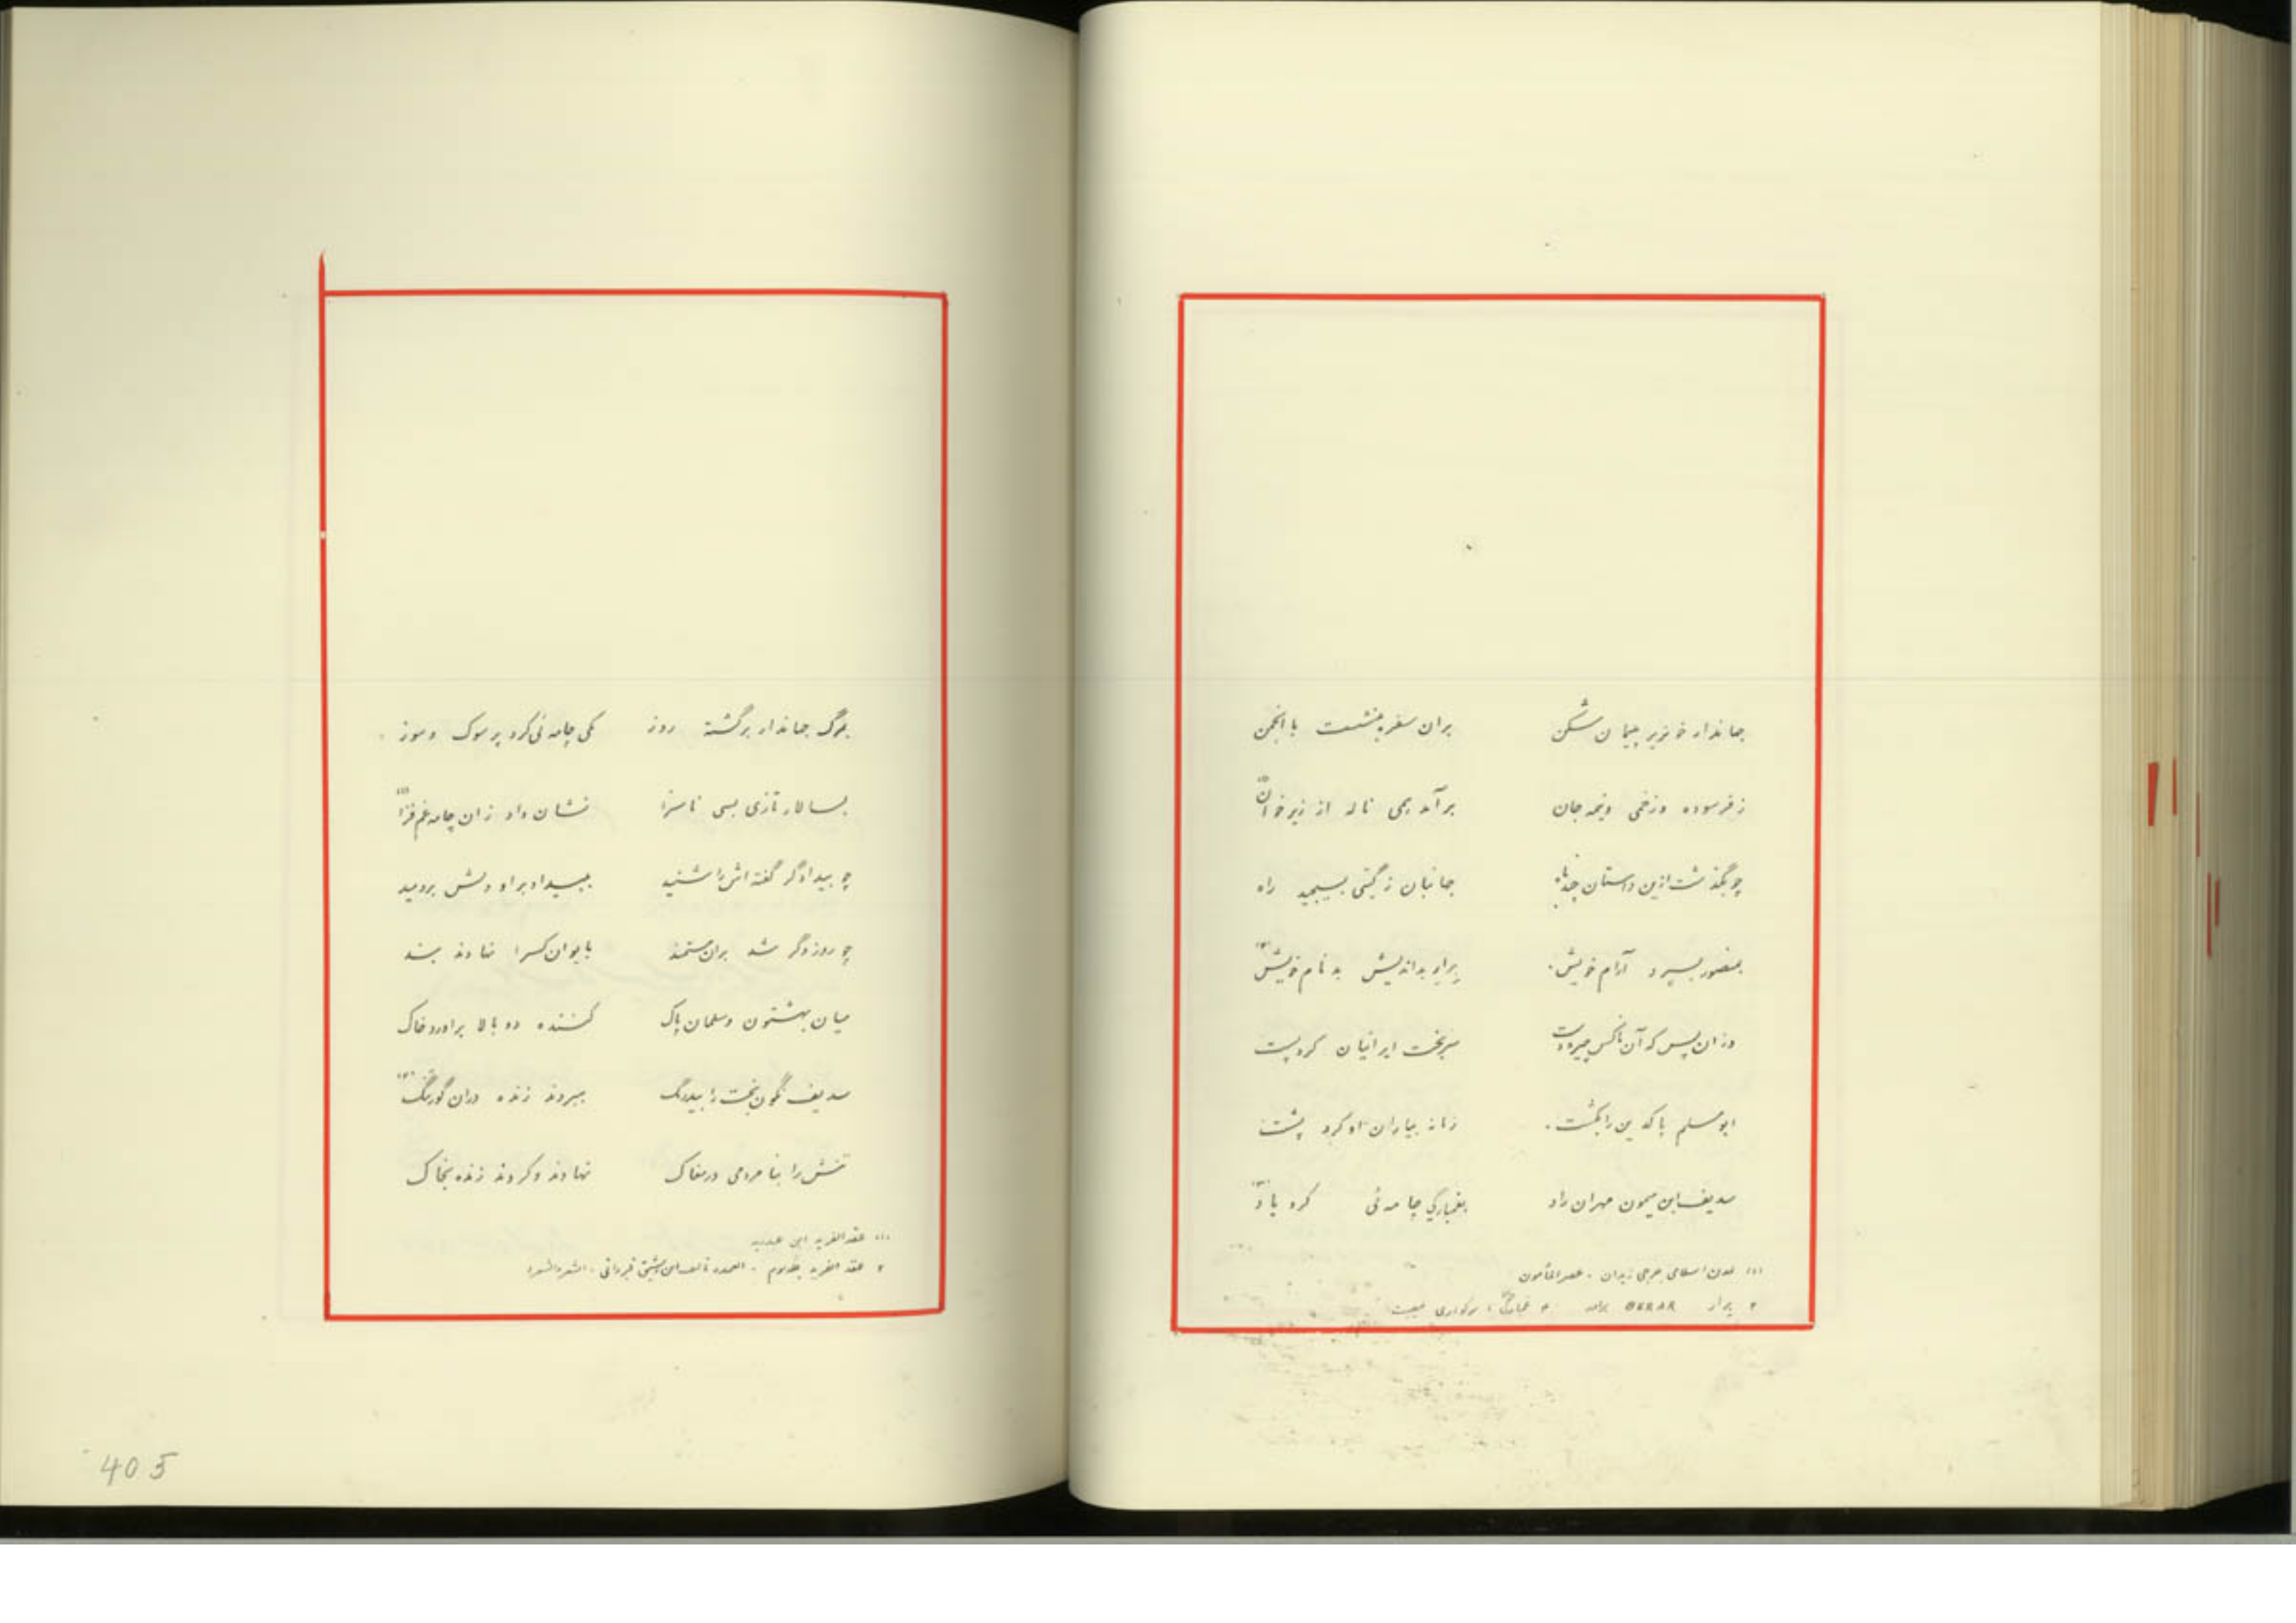 جهاندار خونریز پیمان شکن بران سفره بنشست با انجمن
ز فرسوده و زخمی و نیمه جان برآمد همی ناله از زیر خوان (۱)
چو بگذشت ازین داستان چندگاه جهانبان ز گیتی بسیجید راه
بمنصور بسپرد آرام خویش برادر بداندیش بد نام خویش (۲)
وزان پس که آن ناکس چیره دست سر بخت ایرانیان کرد پست
ابومسلم پاکدین را بکشت زمانه بیاران او کرد پشت
سدیف ابن میمون مهران راد بغمبارگی چامه ئی کرد یاد (۳)
(۱) تمدن اسلامی جرجی زیدان - عصرالمأمون
۲
بمرگ جهاندار برگشته روز یکی چامه ئی کرد پر سوک و سوز
بسالار تازی بسی ناسزا نشان داد زان چامه غم فزا (۱)
چو بیدادگر گفته اش را شنید ببیداد بر او دلش بردمید
چو روز دگر شد بران مستمند بایوان کسرا نهادند بند
میان بهشتون و سلمان پاک کشنده دو بالا برآورد خاک
سدیف نگون بخت را بیدرنگ ببردند زنده دران گور تنگ (۲)
تنش را بنامردمی در مغاک نهادند و کردند زنده بخاک
(۱) عقد الفرید ابن عبدربه
۲ عقد الفرید جلد سوم - العمده تالیف ابن رشیق قیروانی - الشعر والشعرا
405